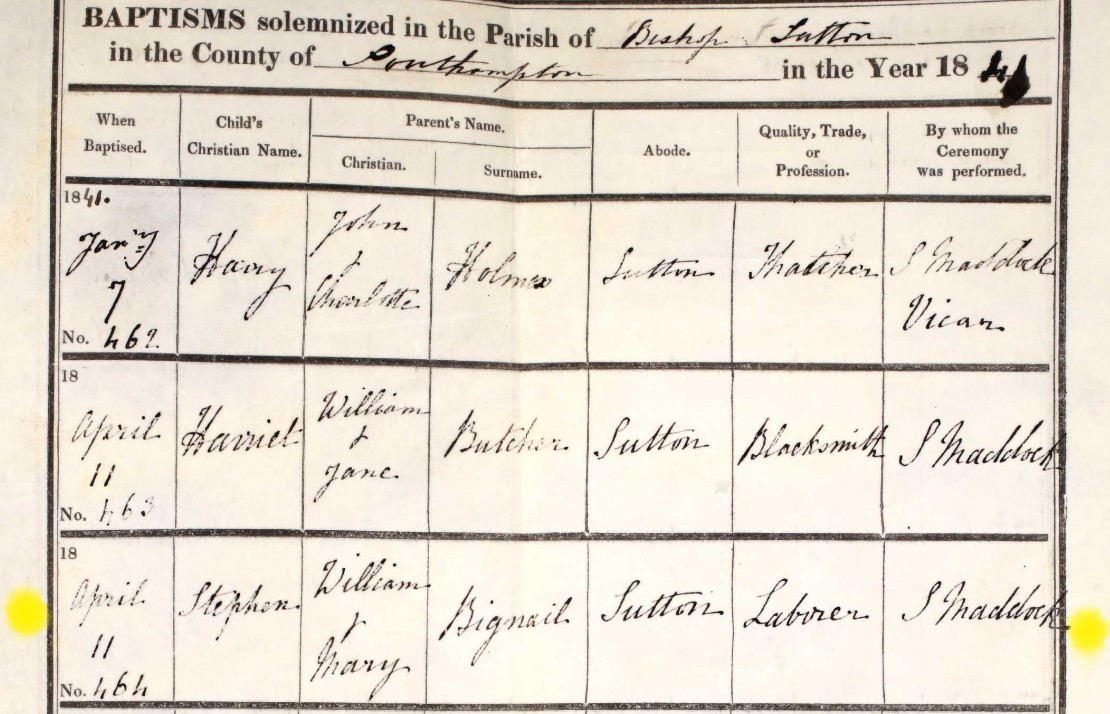 BAPTISMS solemnized in the Parish of Bishop Sutton
in the County of Southampton in the Year 1841
When Baptised. Child's Christian Name. Parent's Name. Christian. Surname. Abode. Quality, Trade, or Profession. By whom the Ceremony was performed.
1841.
Jan'y 7
No. 462.
Harry
John
&
Charlotte
Holmes
Sutton
Thatcher
S Maddock
Vicar
18
April
11
No. 463
Harriet
William
&
Jane
Butcher
Sutton
Blacksmith
S Maddock
18
April
11
No. 464
Stephen
William
&
Mary
Bignail
Sutton
Laborer
S Maddock